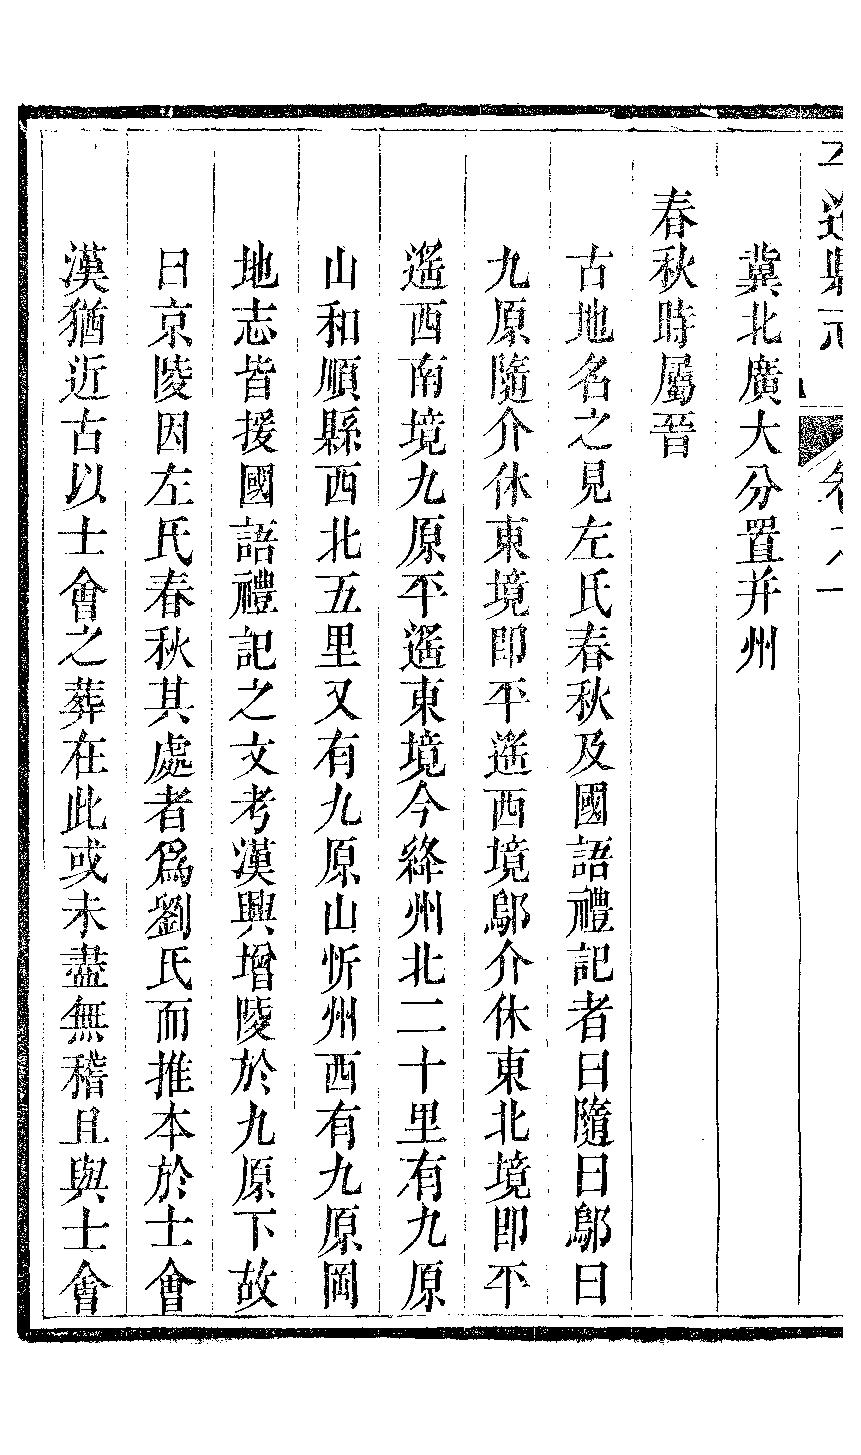 冀北廣大分置并州
春秋時屬晉
古地名之見左氏春秋及國語禮記者曰隨曰鄔曰
九原隨介休東境卽平遙西境鄔介休東北境卽平
遙西南境九原平遙東境今絳州北二十里有九原
山和順縣西北五里又有九原山忻州西有九原岡
地志皆援國語禮記之文考漢興增陵於九原下故
曰京陵因左氏春秋其處者爲劉氏而推本於士會
漢猶近古以士會之葬在此或未盡無稽且與士會